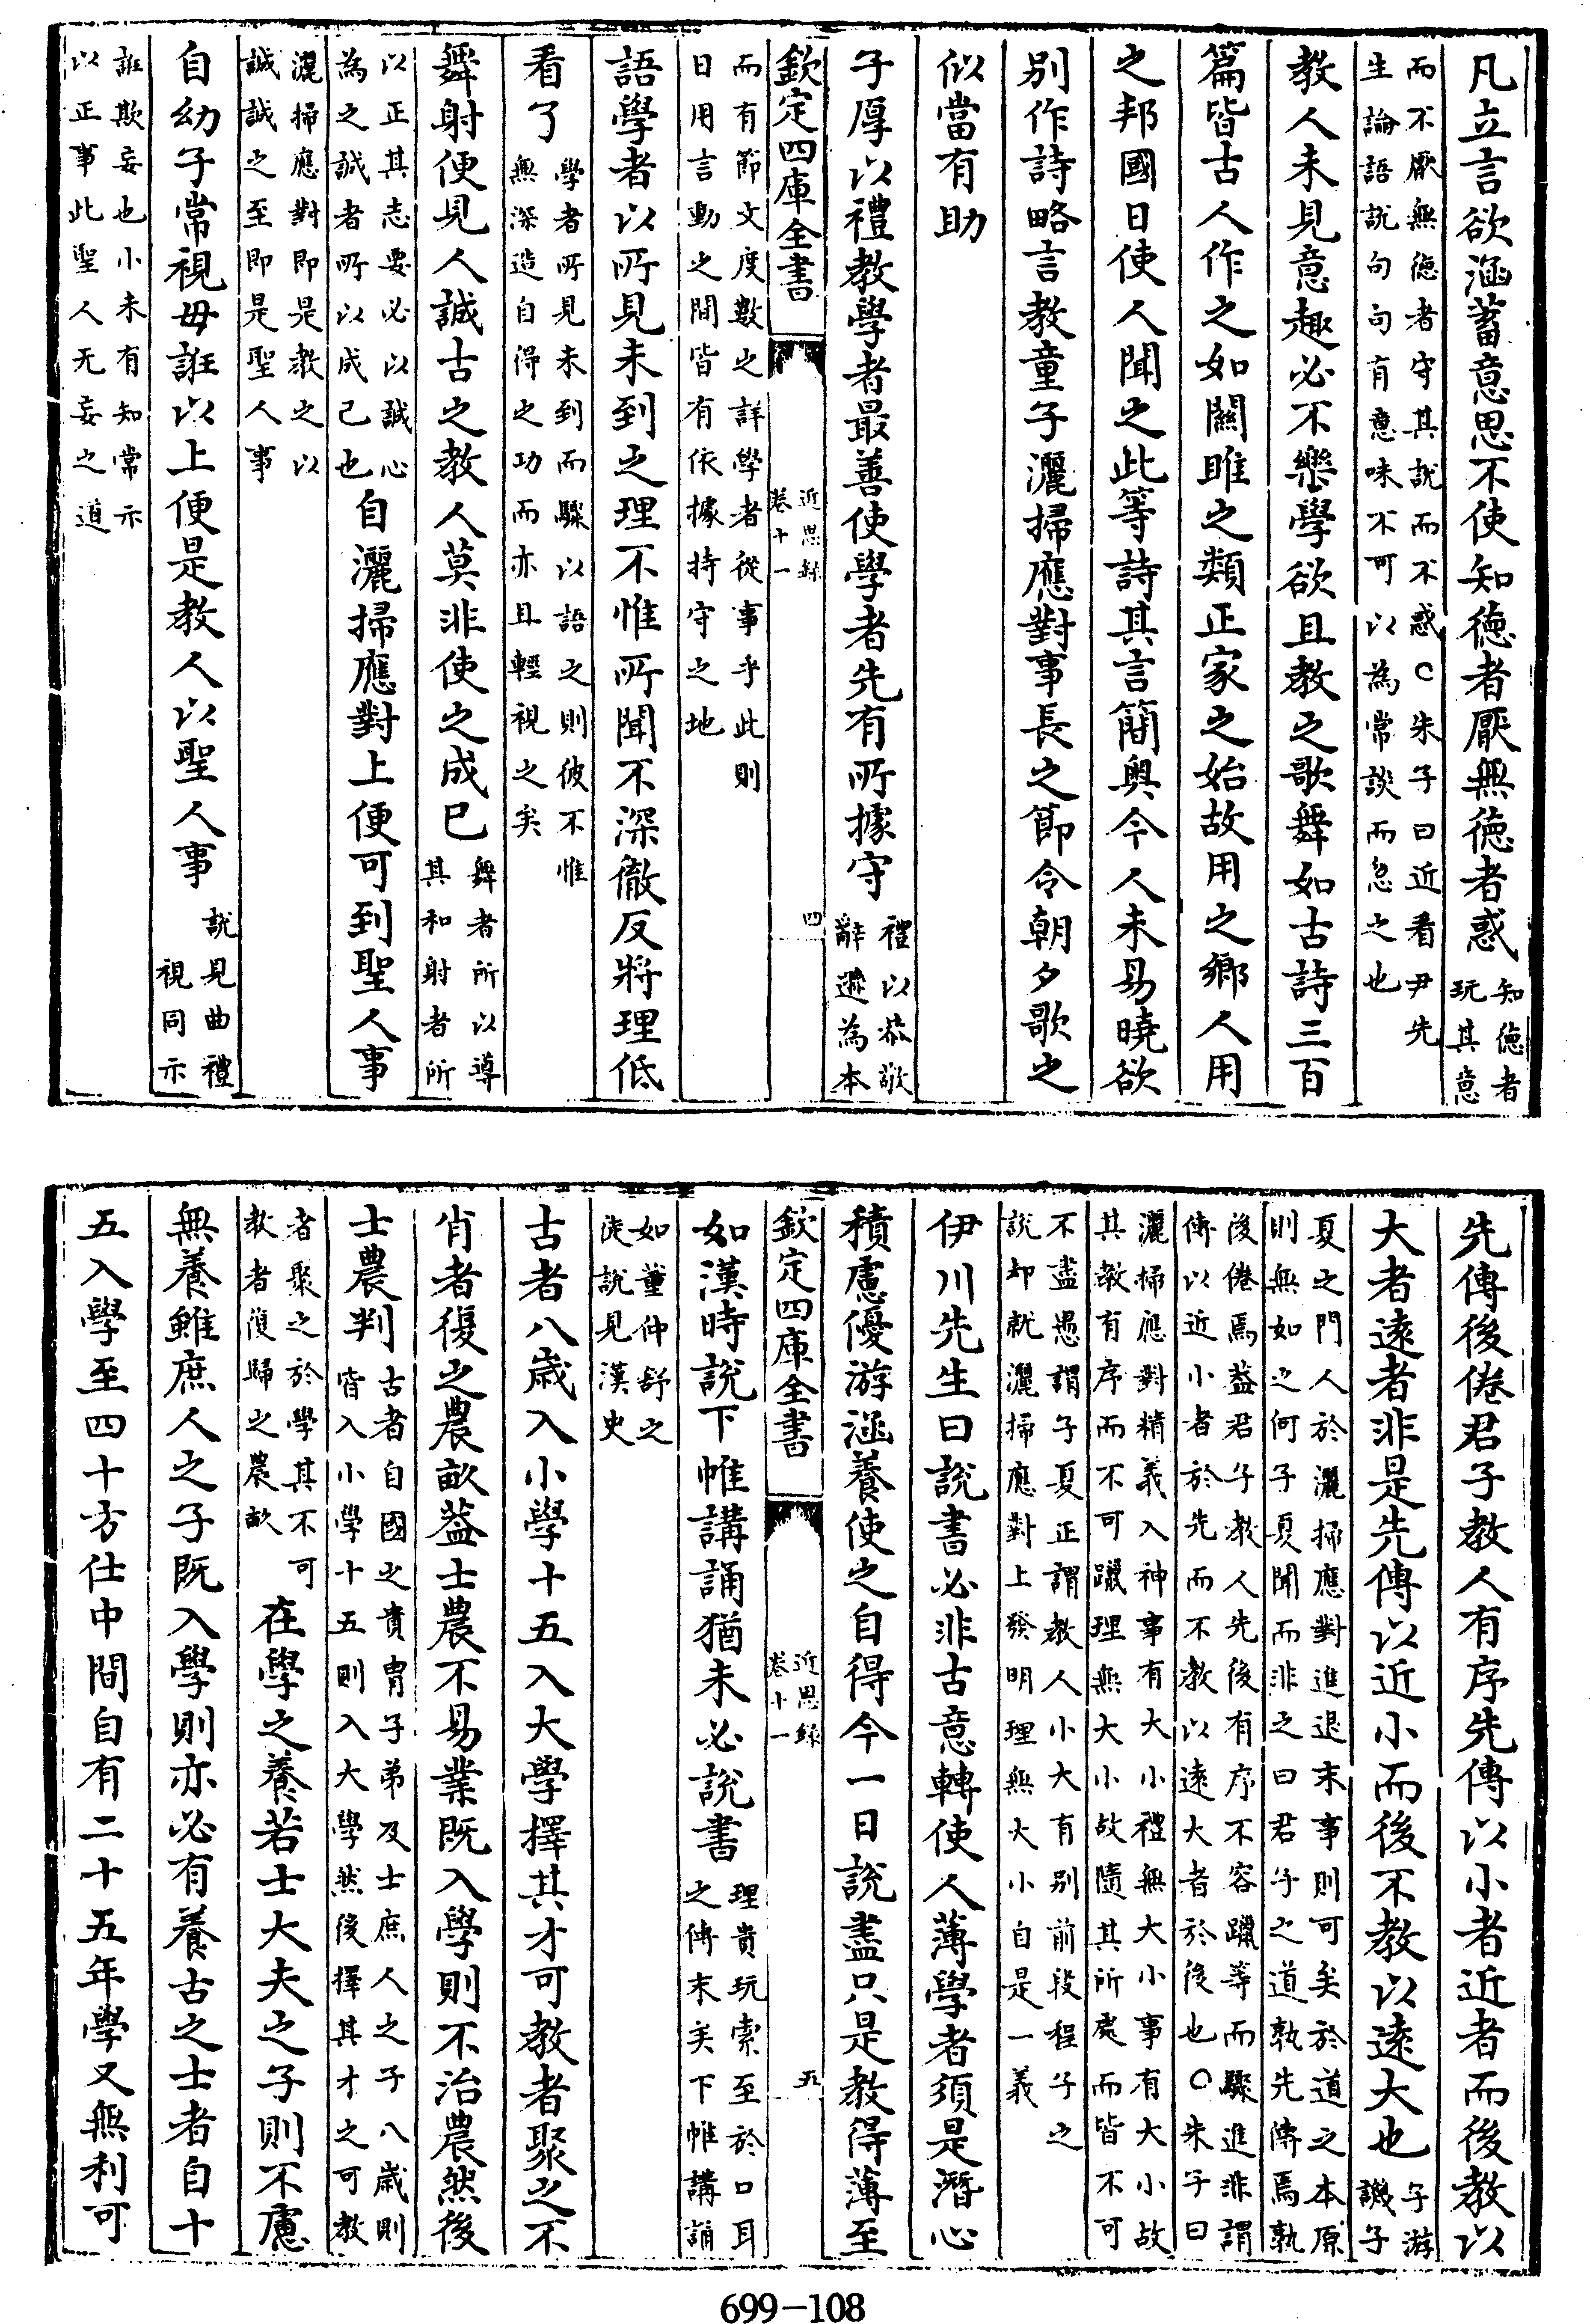 凡立言欲涵蓄意思不使知徳者厭無徳者惑知徳者玩其意
而不厭無徳者守其説而不惑○朱子曰近看尹先
生論語説句句有意味不可以為常談而忽之也
教人未見意趣必不樂學欲且教之歌舞如古詩三百
篇皆古人作之如關雎之類正家之始故用之鄉人用
之邦國日使人聞之此等詩其言簡奥今人未易曉欲
别作詩略言教童子灑掃應對事長之節令朝夕歌之
似當有助
子厚以禮教學者最善使學者先有所據守禮以恭敬辭遜為本
欽定四庫全書
近思録
卷十一
四
而有節文度數之詳學者從事乎此則
日用言動之間皆有依據持守之地
語學者以所見未到之理不惟所聞不深徹反將理低
看了學者所見未到而驟以語之則彼不惟
無深造自得之功而亦且輕視之矣
舞射便見人誠古之教人莫非使之成已舞者所以導其和射者所
以正其志要必以誠心
為之誠者所以成己也自灑掃應對上便可到聖人事
灑掃應對即是教之以
誠誠之至即是聖人事
自幼子常視毋誑以上便是教人以聖人事説見曲禮視同示
誑欺妄也小未有知常示
以正事此聖人无妄之道
先傳後倦君子教人有序先傳以小者近者而後教以
大者遠者非是先傳以近小而後不教以遠大也子游譏子
夏之門人於灑掃應對進退末事則可矣於道之本原
則無如之何子夏聞而非之曰君子之道孰先傳焉孰
後倦焉葢君子教人先後有序不容躐等而驟進非謂
傳以近小者於先而不教以遠大者於後也○朱子曰
灑掃應對精義入神事有大小禮無大小事有大小故
其教有序而不可躐理無大小故隨其所處而皆不可
不盡愚謂子夏正謂教人小大有别前段程子之
説却就灑掃應對上發明理無大小自是一義
伊川先生曰説書必非古意轉使人薄學者須是潛心
積慮優游涵養使之自得今一日説盡只是教得薄至
欽定四庫全書
近思録
卷十一
五
如漢時説下帷講誦猶未必説書理貴玩索至於口耳之傳末矣下帷講誦
如董仲舒之
徒説見漢史
古者八歳入小學十五入大學擇其才可教者聚之不
肖者復之農畝葢士農不易業既入學則不治農然後
士農判古者自國之貴胄子弟及士庶人之子八歳則
皆入小學十五則入大學然後擇其才之可教
者聚之於學其不可
教者復歸之農畝在學之養若士大夫之子則不慮
無養雖庶人之子既入學則亦必有養古之士者自十
五入學至四十方仕中間自有二十五年學又無利可
699-108